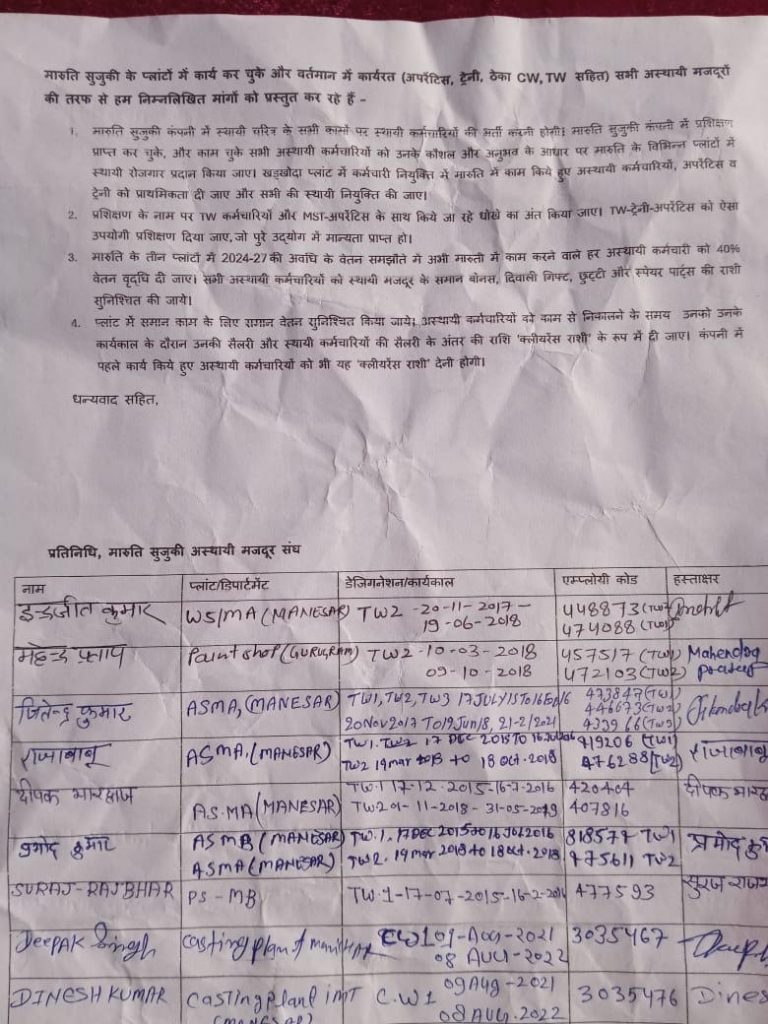 मारुति सुजुकी के प्लांटों में कार्य कर चुके और वर्तमान में कार्यरत (अपरेंटिस, ट्रेनी, ठेका CW, TW सहित) सभी अस्थायी मजदूरों
की तरफ से हम निम्नलिखित मांगों को प्रस्तुत कर रहे हैं -
1. मारुति सुजुकी कंपनी में स्थायी चरित्र के सभी कामों पर स्थायी कर्मचारियों की भर्ती करनी होगी। मारुति सुजुकी कंपनी में प्रशिक्षण
प्राप्त कर चुके, और काम चुके सभी अस्थायी कर्मचारियों को उनके कौशल और अनुभव के आधार पर मारुति के विभिन्न प्लांटों में
स्थायी रोजगार प्रदान किया जाए। खड़खोदा प्लांट में कर्मचारी नियुक्ति में मारुति में काम किये हुए अस्थायी कर्मचारियों, अपरेंटिस व
ट्रेनी को प्राथमिकता दी जाए और सभी की स्थायी नियुक्ति की जाए।
2. प्रशिक्षण के नाम पर TW कर्मचारियों और MST-अपरेंटिस के साथ किये जा रहे धोखे का अंत किया जाए। TW-ट्रेनी-अपरेंटिस को ऐसा
उपयोगी प्रशिक्षण दिया जाए, जो पुरे उद्योग में मान्यता प्राप्त हो।
3. मारुति के तीन प्लांटों में 2024-27 की अवधि के वेतन समझौते में अभी मारुती में काम करने वाले हर अस्थायी कर्मचारी को 40%
वेतन वृद्धि दी जाए। सभी अस्थायी कर्मचारियों को स्थायी मजदूर के समान बोनस, दिवाली गिफ्ट, छुट्टी और स्पेयर पार्ट्स की राशी
सुनिश्चित की जाये।
4. प्लांट में समान काम के लिए समान वेतन सुनिश्चित किया जाये। अस्थायी कर्मचारियों को काम से निकालने के समय उनको उनके
कार्यकाल के दौरान उनकी सैलरी और स्थायी कर्मचारियों की सैलरी के अंतर की राशि 'क्लीयरेंस राशी' के रूप में दी जाए। कंपनी में
पहले कार्य किये हुए अस्थायी कर्मचारियों को भी यह 'क्लीयरेंस राशी' देनी होगी।
धन्यवाद सहित,
प्रतिनिधि, मारुति सुजुकी अस्थायी मजदूर संघ
नाम प्लांट/डिपार्टमेंट डेजिगनेशन/कार्यकाल एम्प्लोयी कोड हस्ताक्षर
इन्द्रजीत कुमार WS/MA (MANESAR) TW2 -20-11-2017 - 448873 (TW
19-06-2018 474088 (TW
महेन्द्र प्रताप Paint shop (GURUGRAM) TW2-10-03-2018 457517 (TW1) Mahendra
09-10-2018 472103 (TW2)
जितेन्द्र कुमार ASMA, (MANESAR) TW1, TW2, TW3 17 JULY 15 TO 16 Feb 16 473847 (TW1)
20 Nov 2017 TO 19 Jun 18, 21-2/2021 446673
राजाबाबू ASMA. (MANESAR) TW1. TW2 17 DEC 2015 TO 16 419206 (TW1) राजाबाबू
TW2 19 mar 2018 to 18 Oct. 2018 476288 (TW2)
दीपक भारद्वाज TW.1 17-12-2015-16-7-2016 420404 दीपक
AS.MA (MANESAR) TW2 01-11-2018 - 31-05-2019 407816
प्रमोद कुमार ASMB (MANESAR) TW.1. 17 DEC 2015 to 16 Jul 2016 818577 TW1 प्रमोद
ASMA (MANESAR) TW2. 19 mar 2018 to 18 Oct. 2018 475611 TW2
SURAJ-RAJBHAR PS-MB TW-1-17-07-2015-16-2-2016 477593 सुरज
DeePAK Singh Casting plant CW1 01-AUG-2021 3035467
08 AUG-2022
DINESH KUMAR Casting plant IMT C.W1 09 Aug-2021 3035476 Dines
(MANESAR) 08 AUG. 2022